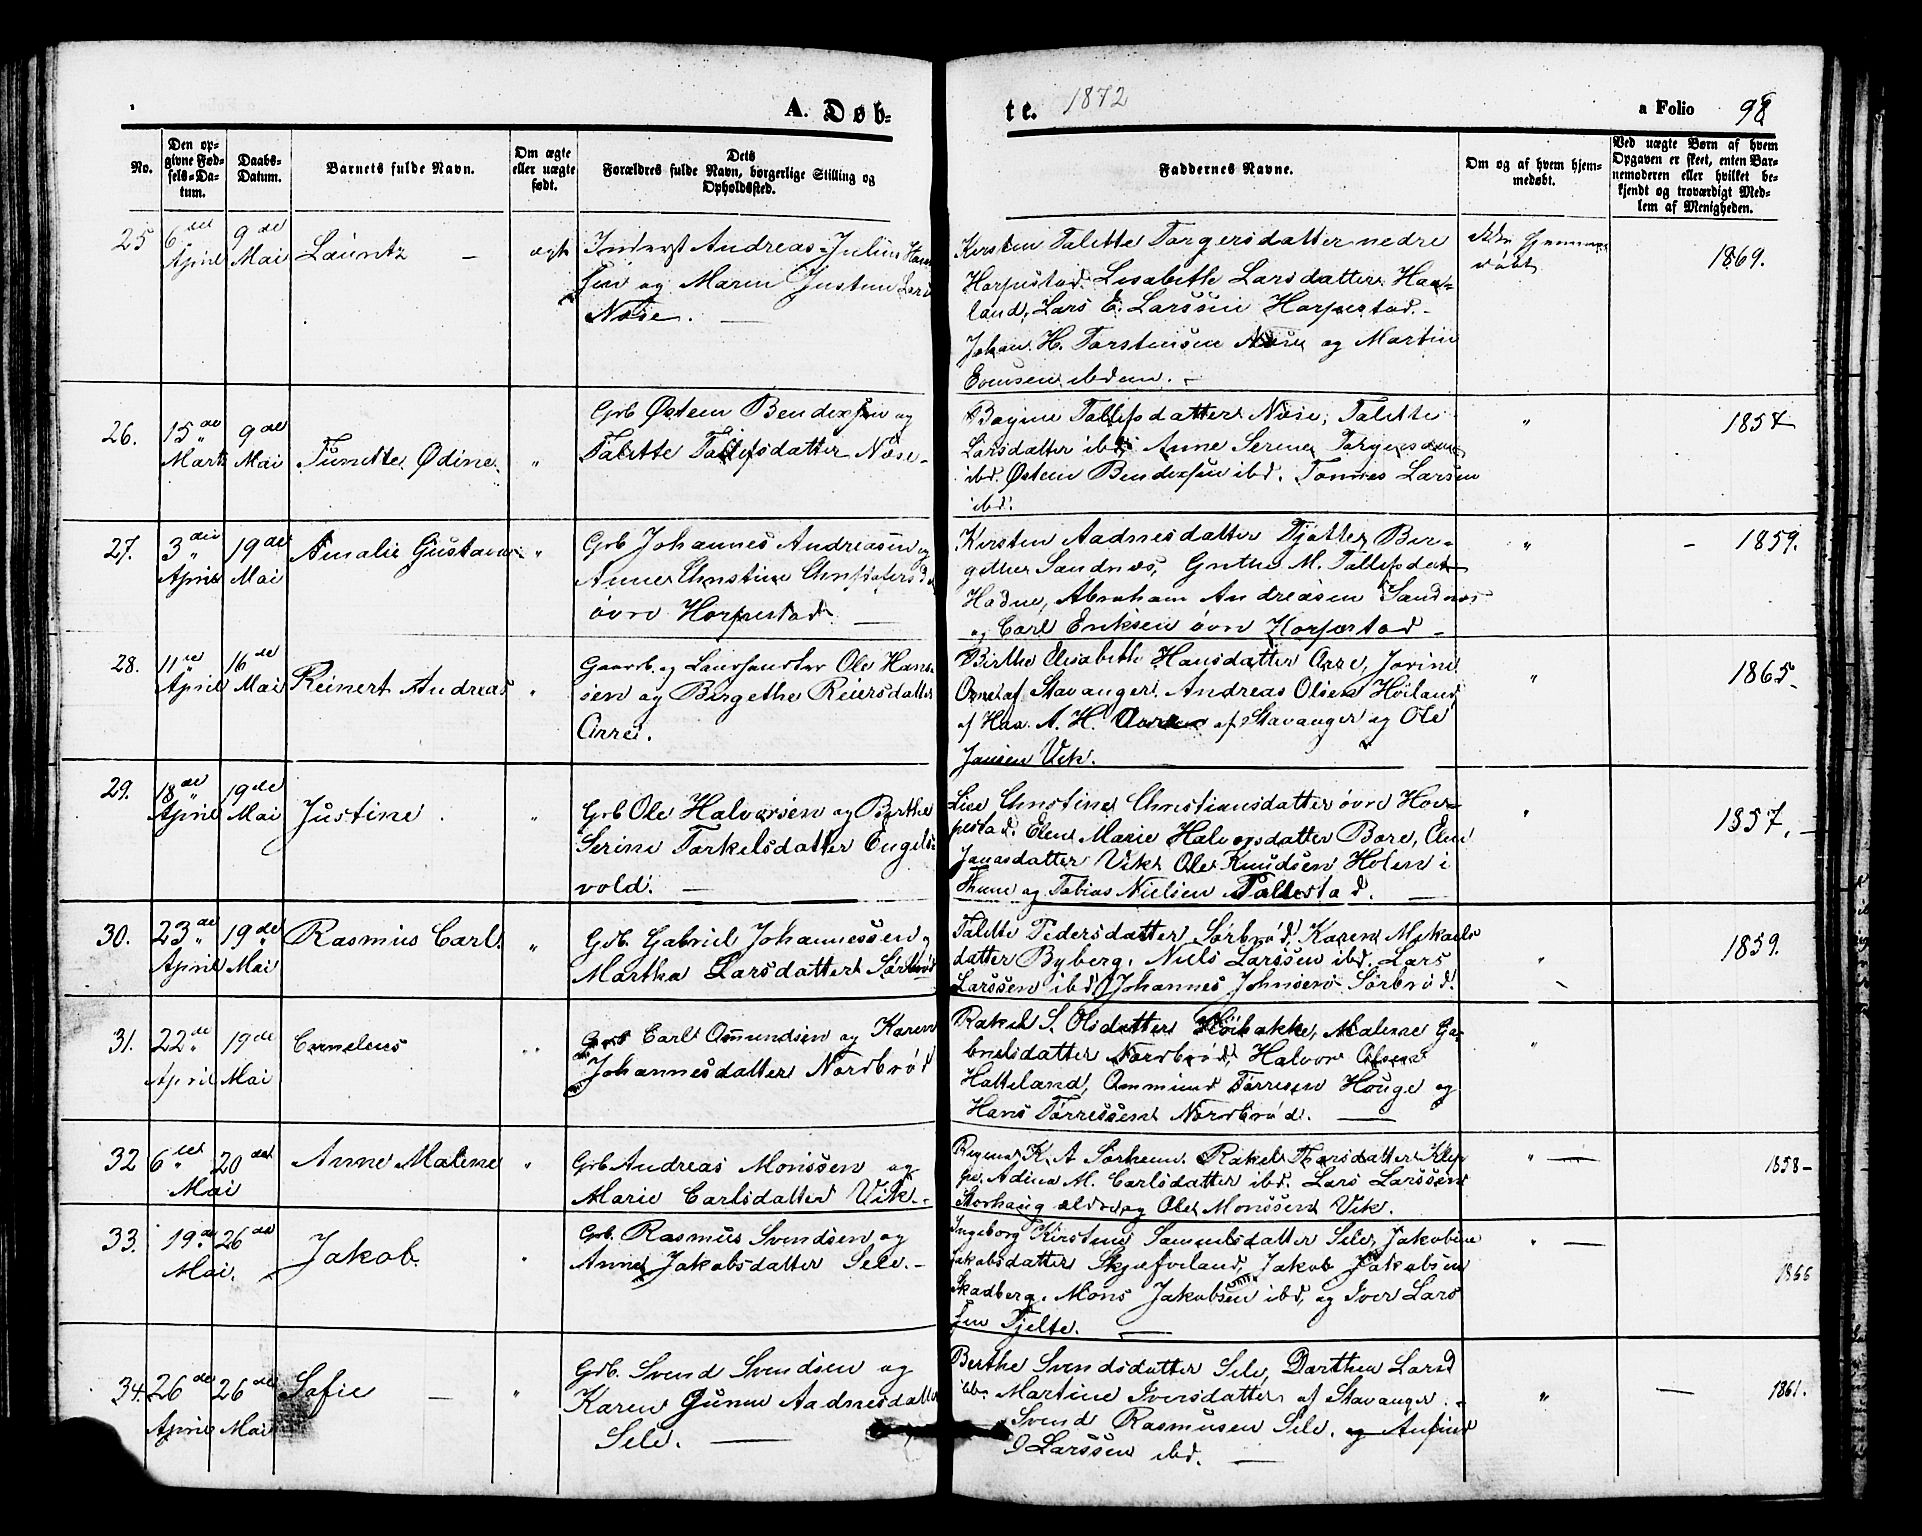 A. Døb-
te. 1872
a Folio 98
No.
Den op-
givne Fød-
sels-Da-
tum.
Daabs-
Datum.
Barnets fulde Navn.
Om ægte
eller uægte
født.
Dets
Forældres fulde Navn, borgerlige Stilling og
Opholdssted.
Faddernes Navne.
Om og af hvem hjem-
medøbt.
Ved uægte Børn af hvem
Opgaven er skeet, enten Bar-
nemoderen eller hvilket be-
kjendt og troværdigt Med-
lem af Menigheden.
25 6 April 9de Mai Lauritz — ægte
Inderst Andreas Julius Han-
sen og Maren Justine Lars
Næse. —
Kirsten Talette Torgersdatter nedre
Horpestad. Lisabeth Larsdatter Haa-
land, Lars E. Larssen Horpestad.
Johan H. Torstensen Næse og Martin
Evensen ibdem. -
døbt
1869.
26. 15de Marts 9de Mai Tunette Ødine "
Grb Østen Bendixsen og
Talette Tollefsdatter Næse -
Tollefsdatter Næse, Talette
Larsdatter ibd. Anne Serene Torgersdatter
ibd. Østen Bendixsen ibd. Tønnes Larsen
ibd.
"
27. 3die April 19de Mai Amalie Gustava "
Grb Johannes Andreasen og
Anne Christine Christofersd
øvre Horpestad. —
Kirsten Aadnesdatter Tjøtte, Ber-
gitte Sandnes, Grethe M. Tollefsdat
Hadne, Abraham Andreasen Sandnes
og Carl Eriksen øvre Horpestad -
" - 1859.
28. 11te April 16de Mai Reinert Andreas "
Gaardb. og Ole Han-
sen og Bergethe Reiersdatter
Orre.
Birthe Elisabeth Hansdatter Orre, Jorine
Orre af Stavanger. Andreas Olsen Høiland
af Haa. A. H. af Stavanger og Ole
Jansen Vik.
" 1865-
29. 18de April 19de Mai Justine. "
Grb Ole Halvorsen og Berthe
Serine Torkelsdatter Engels-
vold. —
Lise Christine Christiansdatter øvre Hor-
pestad. Elen Marie Halvorsdatter Bore, Elen
Jonasdatter Vik. Ole Knudsen Holen i
Thime og Tobias Nielsen Tallestad. —
" 1857. -
30. 23de April 19de Mai Rasmus Carl. "
Grb. Gabriel Johannessen og
Martha Larsdatter Sørbrød
Talette Pedersdatter Sørbrød, Karen Mikaels
datter Byberg. Niels Larssen ibd. Lars
Larssen ibd. Johannes Johnsen Sørbrød.
" 1859.
31. 22de April 19de Mai Cornelius "
Grb Carl Omundsen og Karen
Johannesdatter Nordbrød
Rakel S. Olsdatter Høibakke, Malene Ga-
brielsdatter Nordbrød, Halvor Olsen
Hatteland, Ommund Tørresen Houge og
Hans Tørressen Nordbrød. —
"
32 6te Mai 20de Anne Malene "
Grb Andreas Monssen og
Marie Carlsdatter Vik. -
K. A Sørheim. Rakel Thorsdatter Klep
pe. Adina M. Carlsdatter ibd. Lars Larssen
Storhaug ældre og Ole Monssen Vik.
" — 1858-
33. 19de Mai. 26de Jakob. "
Grb. Rasmus Svendsen og
Anne Jakobsdatter Sele. -
Ingeborg Kirstine Samuelsdatter Sele, Jakobine
Jakobsdatter Skjæfveland, Jakob Jakobsen
Skadberg. Mons Jakobsen ibd, og Iver Lars
sen Tjelte. —
" — 1866
34. 26de April 26de Mai Sofie — "
Grb. Svend Svendsen og
Karen Gurine Aadnesdatter
Sele. —
Berthe Svendsdatter Sele, Dorthea Larsd
ibd. Martine Iversdatter af Stavanger. -
Svend Rasmusen Sele. og Anfind
G Larssen ibd. —
" — 1861.